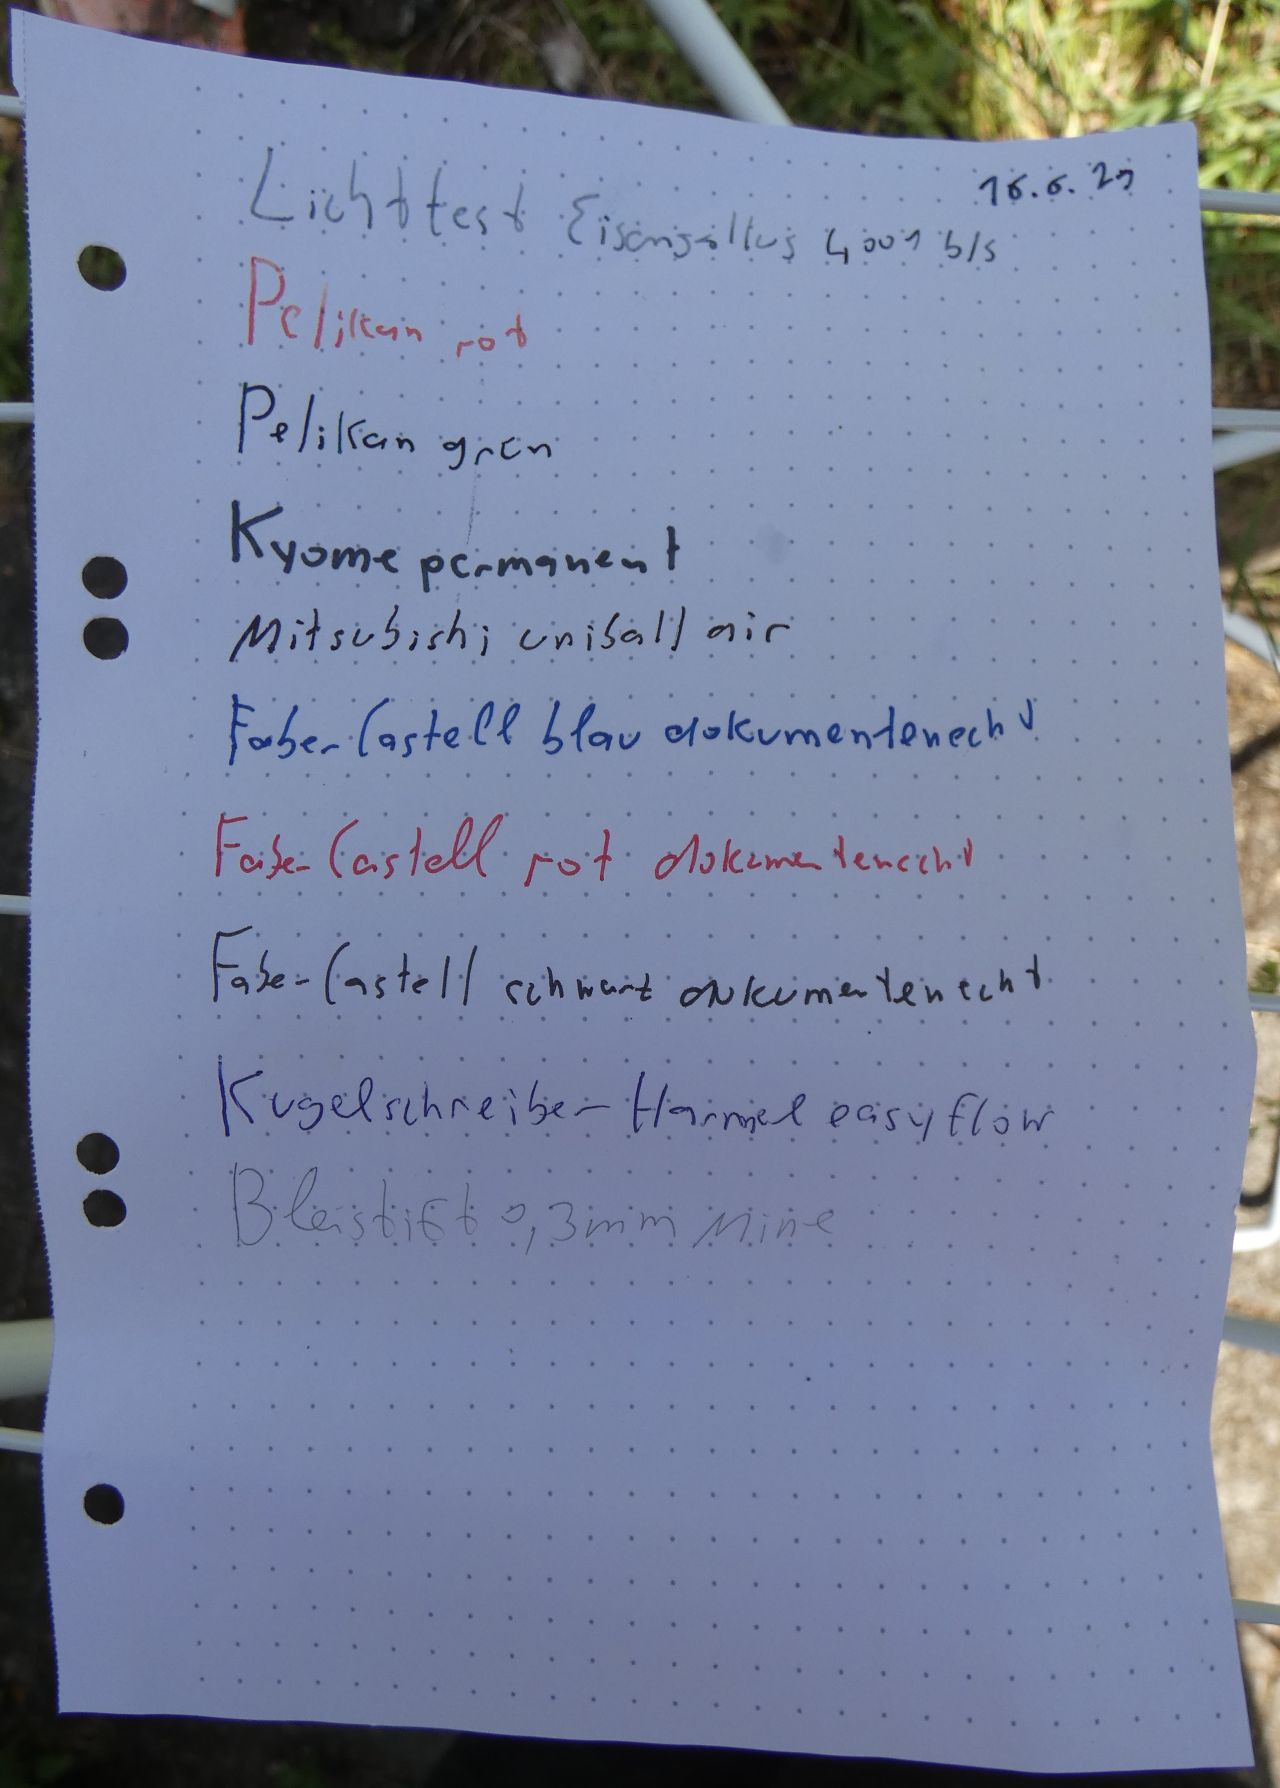 16.6.21
Lichttest Eisengallus 4001 b/s
Pelikan rot
Pelikan grün
Kyome permanent
Mitsubishi uniball air
Faber-Castell blau dokumentenecht
Faber-Castell rot dokumentenecht
Faber-Castell schwarz dokumentenecht
Kugelschreiber Hammel easyflow
Bleistift 0,3mm Mine